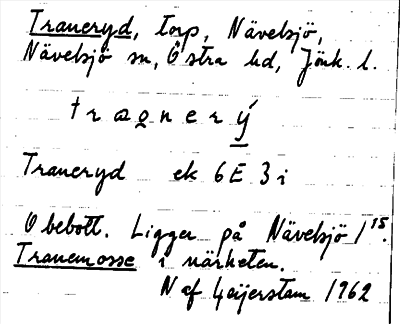 Traneryd, torp, Nävelsjö,
Nävelsjö sn, Östra hd, Jönk. l.
tranerý
Traneryd ek 6E 3i
Obebott. Ligger på Nävelsjö 1¹⁵.
Tranemosse i närheten.
N af Geijerstam 1962